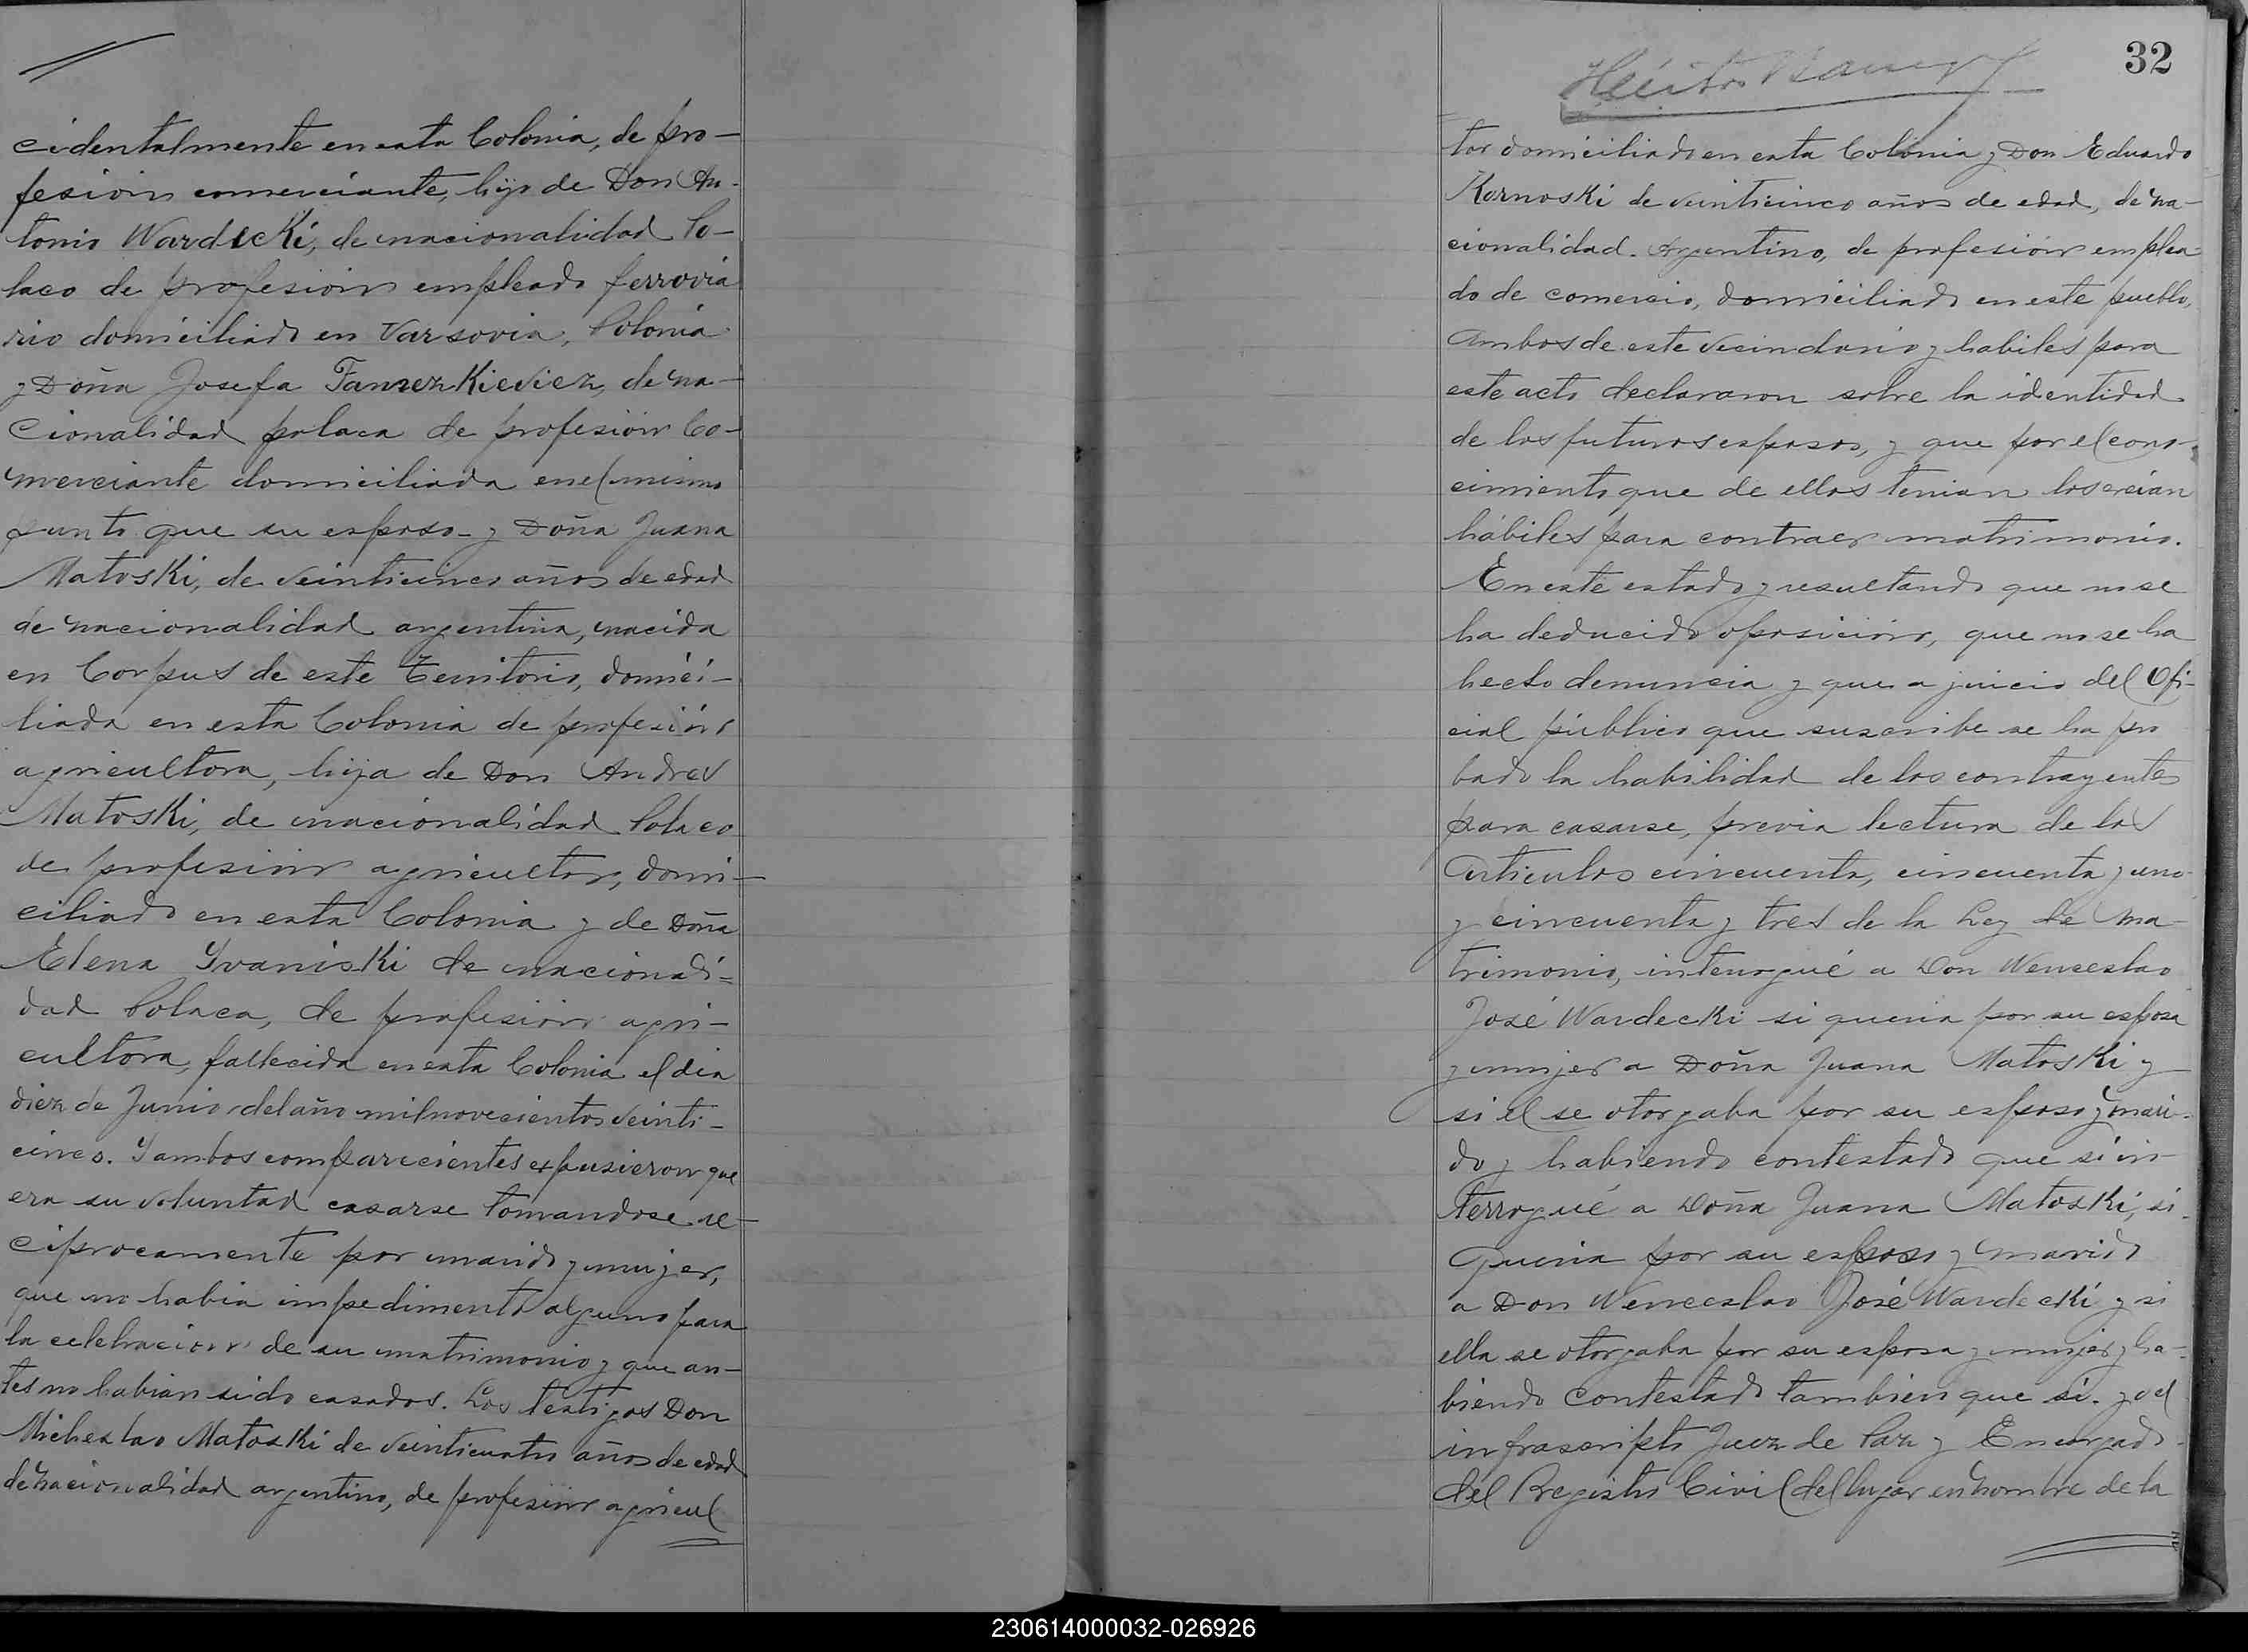 cidentalmente en esta Colonia, de pro-
fesión comerciante, hijo de Don An-
tonio Wardecki, de nacionalidad Po-
laco de profesión empleado ferrovia
rio domiciliado en Varsovia, Polonia
y Doña Josefa, de na-
cionalidad polaca de profesión Co-
merciante domiciliada en el mismo
punto que su esposo - y Doña Juana
Matoski, de veinticinco años de edad
de nacionalidad argentina, nacida
en Corpus de este Territorio, domici-
liada en esta Colonia de profesión
agricultora, hija de Don Andres
Matoski, de nacionalidad Polaco
de profesión agricultor, domi-
ciliado en esta Colonia y de Doña
Elena Yvaniski de nacionali-
dad Polaca, de profesión agri-
cultora, fallecida en esta Colonia el dia
diez de Junio del año mil novecientos veinti-
cinco. Y ambos comparecientes expusieron que
era su voluntad casarse tomandose re-
ciprocamente por marido y mujer,
que no habia impedimento alguno para
la celebracion de su matrimonio y que an-
tes no habian sido casados. Los testigos Don
Micheslao Matoski de veinticuatro años de edad
de nacionalidad argentino, de profesión agricul
32
tor domiciliado en esta Colonia y Don Eduardo
Kornoski de veinticinco años de edad, de na-
cionalidad Argentino, de profesión emplea-
do de comercio, domiciliado en este pueblo,
ambos de este vecindario y habiles para
este acto declararon sobre la identidad
de los futuros esposos, y que por el cono-
cimiento que de ellos tenian los creían
hábiles para contraer matrimonio.
En este estado y resultando que no se
ha deducido oposición, que no se ha
hecho denuncia y que a juicio del Ofi-
cial público que suscribe se ha pro
bado la habilidad de los contrayentes
para casarse, previa lectura de los
Articulos cincuenta, cincuenta y uno
y cincuenta y tres de la Ley de Ma-
trimonio, interrogué a Don Wenceslao
José Wardecki si queria por su esposa
y mujer a Doña Juana Matoski y
si el se otorgaba por su esposo y mari-
do y habiendo contestado que sí in-
terrogué a Doña Juana Matoski, si
queria por su esposo y marido
a Don Wenceslao José Wardecki y si
ella se otorgaba por su esposa y mujer y ha-
biendo contestado tambien que sí. yo el
infrascripto Juez de Paz y Encargado
del Registro Civil del lugar en nombre de la
230614000032-026926